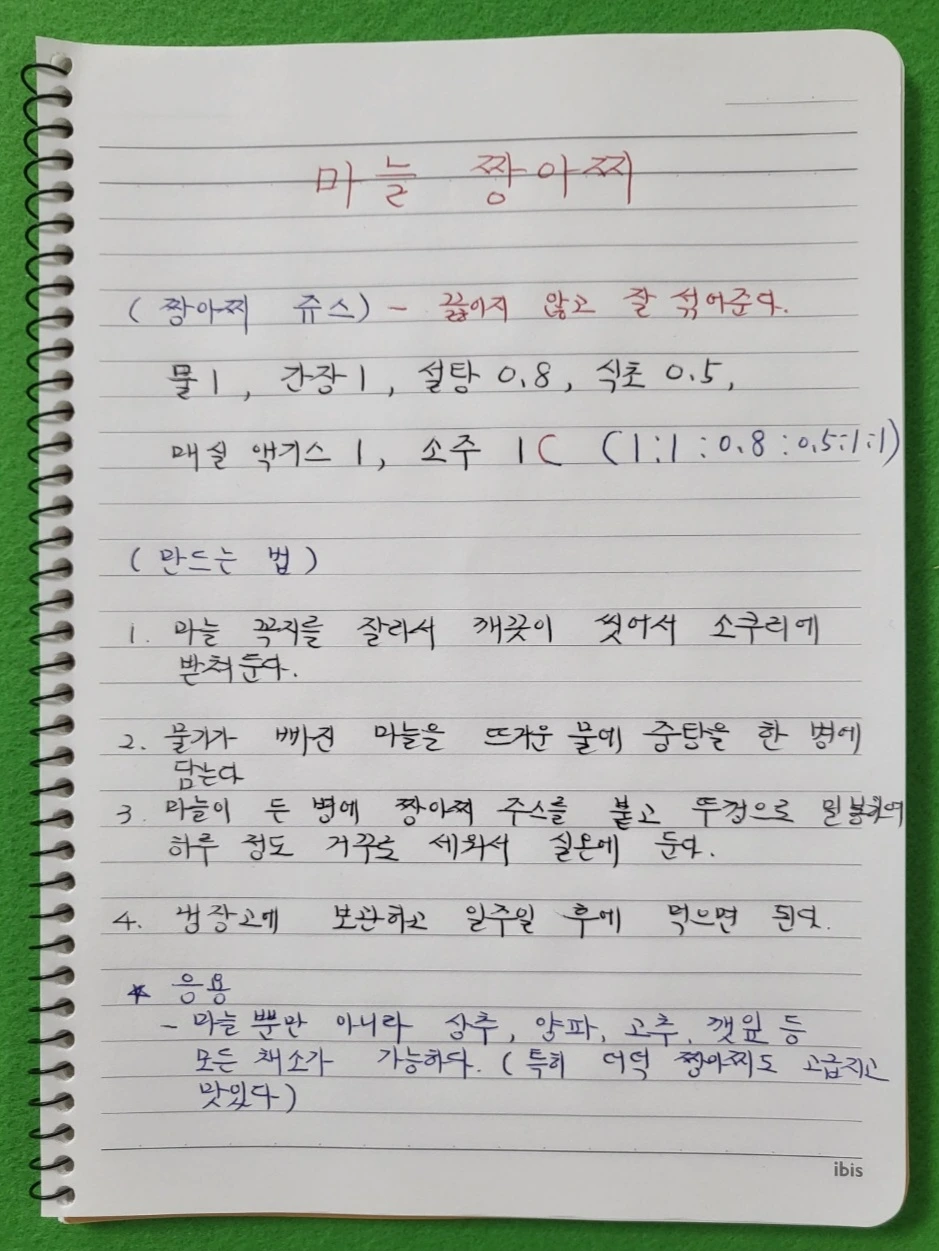 마늘 짱아찌
( 짱아찌 쥬스) - 끓이지 않고 잘 섞어준다.
물 1 , 간장 1 , 설탕 0.8 , 식초 0.5 ,
매실 액기스 1 , 소주 1C (1:1:0.8:0.5:1:1)
( 만드는 법 )
1. 마늘 꼭지를 잘라서 깨끗이 씻어서 소쿠리에
받쳐둔다.
2. 물기가 빠진 마늘을 뜨거운 물에 중탕을 한 병에
담는다
3. 마늘이 든 병에 짱아찌 주스를 붙고 뚜껑으로 밀봉하여
하루 정도 거꾸로 세워서 실온에 둔다.
4. 냉장고에 보관하고 일주일 후에 먹으면 된다.
* 응용
- 마늘 뿐만 아니라 상추, 양파, 고추, 깻잎 등
모든 채소가 가능하다. ( 특히 더덕 짱아찌도 고급지고
맛있다 )
ibis